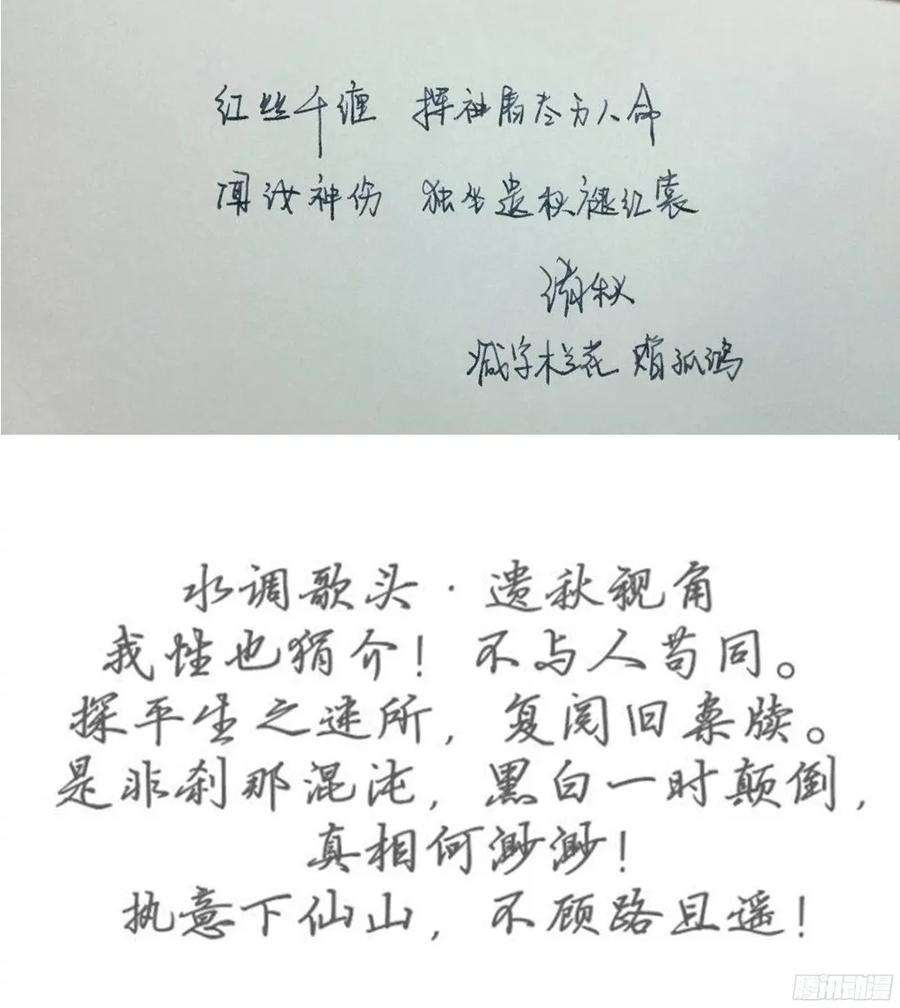 红丝千缠 探神府尽方人命
闻汝神伤 独坐遗秋褪红裳
清秋
减字木兰花 赠孤鸿
水调歌头·遗秋视角
我性也狷介！不与人苟同。
探平生之迷所，复阅旧案牍。
是非刹那混沌，黑白一时颠倒，
真相何渺渺！
执意下仙山，不顾路且遥！
腾讯动漫